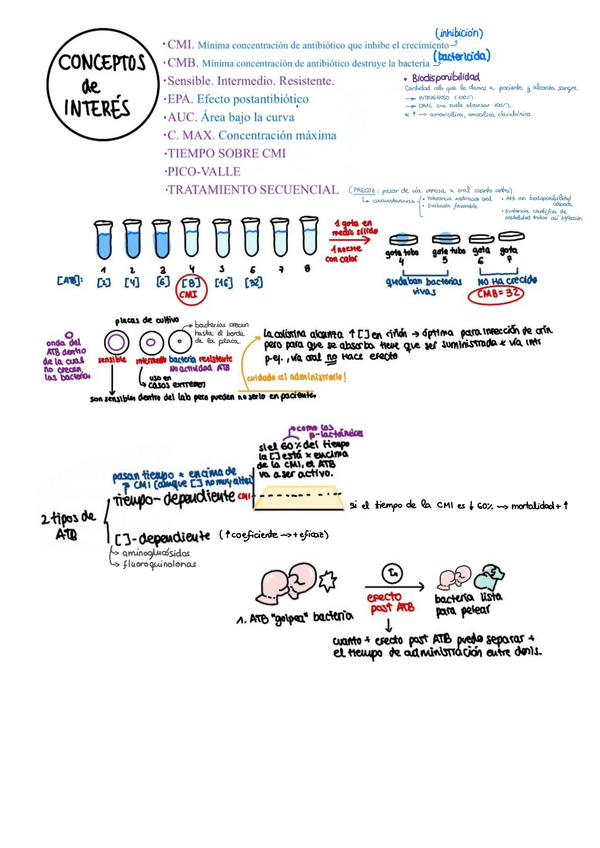 CONCEPTOS
de
INTERÉS
·CMI. Mínima concentración de antibiótico que inhibe el crecimiento
(inhibición)
·CMB. Mínima concentración de antibiótico destruye la bacteria
(bactericida)
·Sensible. Intermedio. Resistente.
·EPA. Efecto postantibiótico
·AUC. Área bajo la curva
·C. MAX. Concentración máxima
·TIEMPO SOBRE CMI
·PICO-VALLE
·TRATAMIENTO SECUENCIAL
• Biodisponibilidad
Cantidad atb que le damos a paciente y alcanza sangre.
→ INTRAVENOSO (100%)
→ ORAL (no suele alcanzar 100%)
* ↑ → amoxicilina, amoxicilina clavulánico.
(PRECOZ: pasar de vía venosa a oral cuanto antes)
↳ circunstancias
• Tolerancia medicación oral
• Evolución favorable
• Atb con biodisponibilidad adecuada
• Evidencia científica de
posibilidad tratar así infección
1 2 3 4 5 6 7 8
[ATB]: [2] [4] [6] [8] [16] [32]
CMI
1 gota en
medio sólido
1 noche
con calor
gota tubo
4
gota tubo
5
gota
6
gota
7
quedaban bacterias
vivas
NO HA crecido
CMB=32
placas de cultivo
→bacterias crecen
hasta el borde
de la placa.
onda del
ATB dentro
de la cual
no crecen
las bacterias
sensible
intermedio
bacteria resistente
No actividad ATB
uso en
casos extremos
son sensibles dentro del lab pero pueden no serlo en paciente.
la colistina alcanza ↑[] en riñón → óptima para infección de orin
pero para que se absorba tiene que ser suministrada x vía intr
p.ej., vía oral no hace efecto
cuidado al administrarlo!
→como los
β-lactámicos
si el 60% del tiempo
la [] está x encima
de la CMI, el ATB
va a ser activo.
pasan tiempo x encima de
CMI (aunque [] no muy altas)
Tiempo-dependiente
CMI
si el tiempo de la CMI es ↓ 60% → mortalidad + ↑
2 tipos de
ATB
[]-dependiente (↑coeficiente →+eficaz)
↳ aminoglucósidos
↳ fluoroquinolonas
1. ATB "golpea" bacteria
efecto
post ATB
bacteria lista
para pelear
cuanto + efecto post ATB puedo separar +
el tiempo de administración entre dosis.